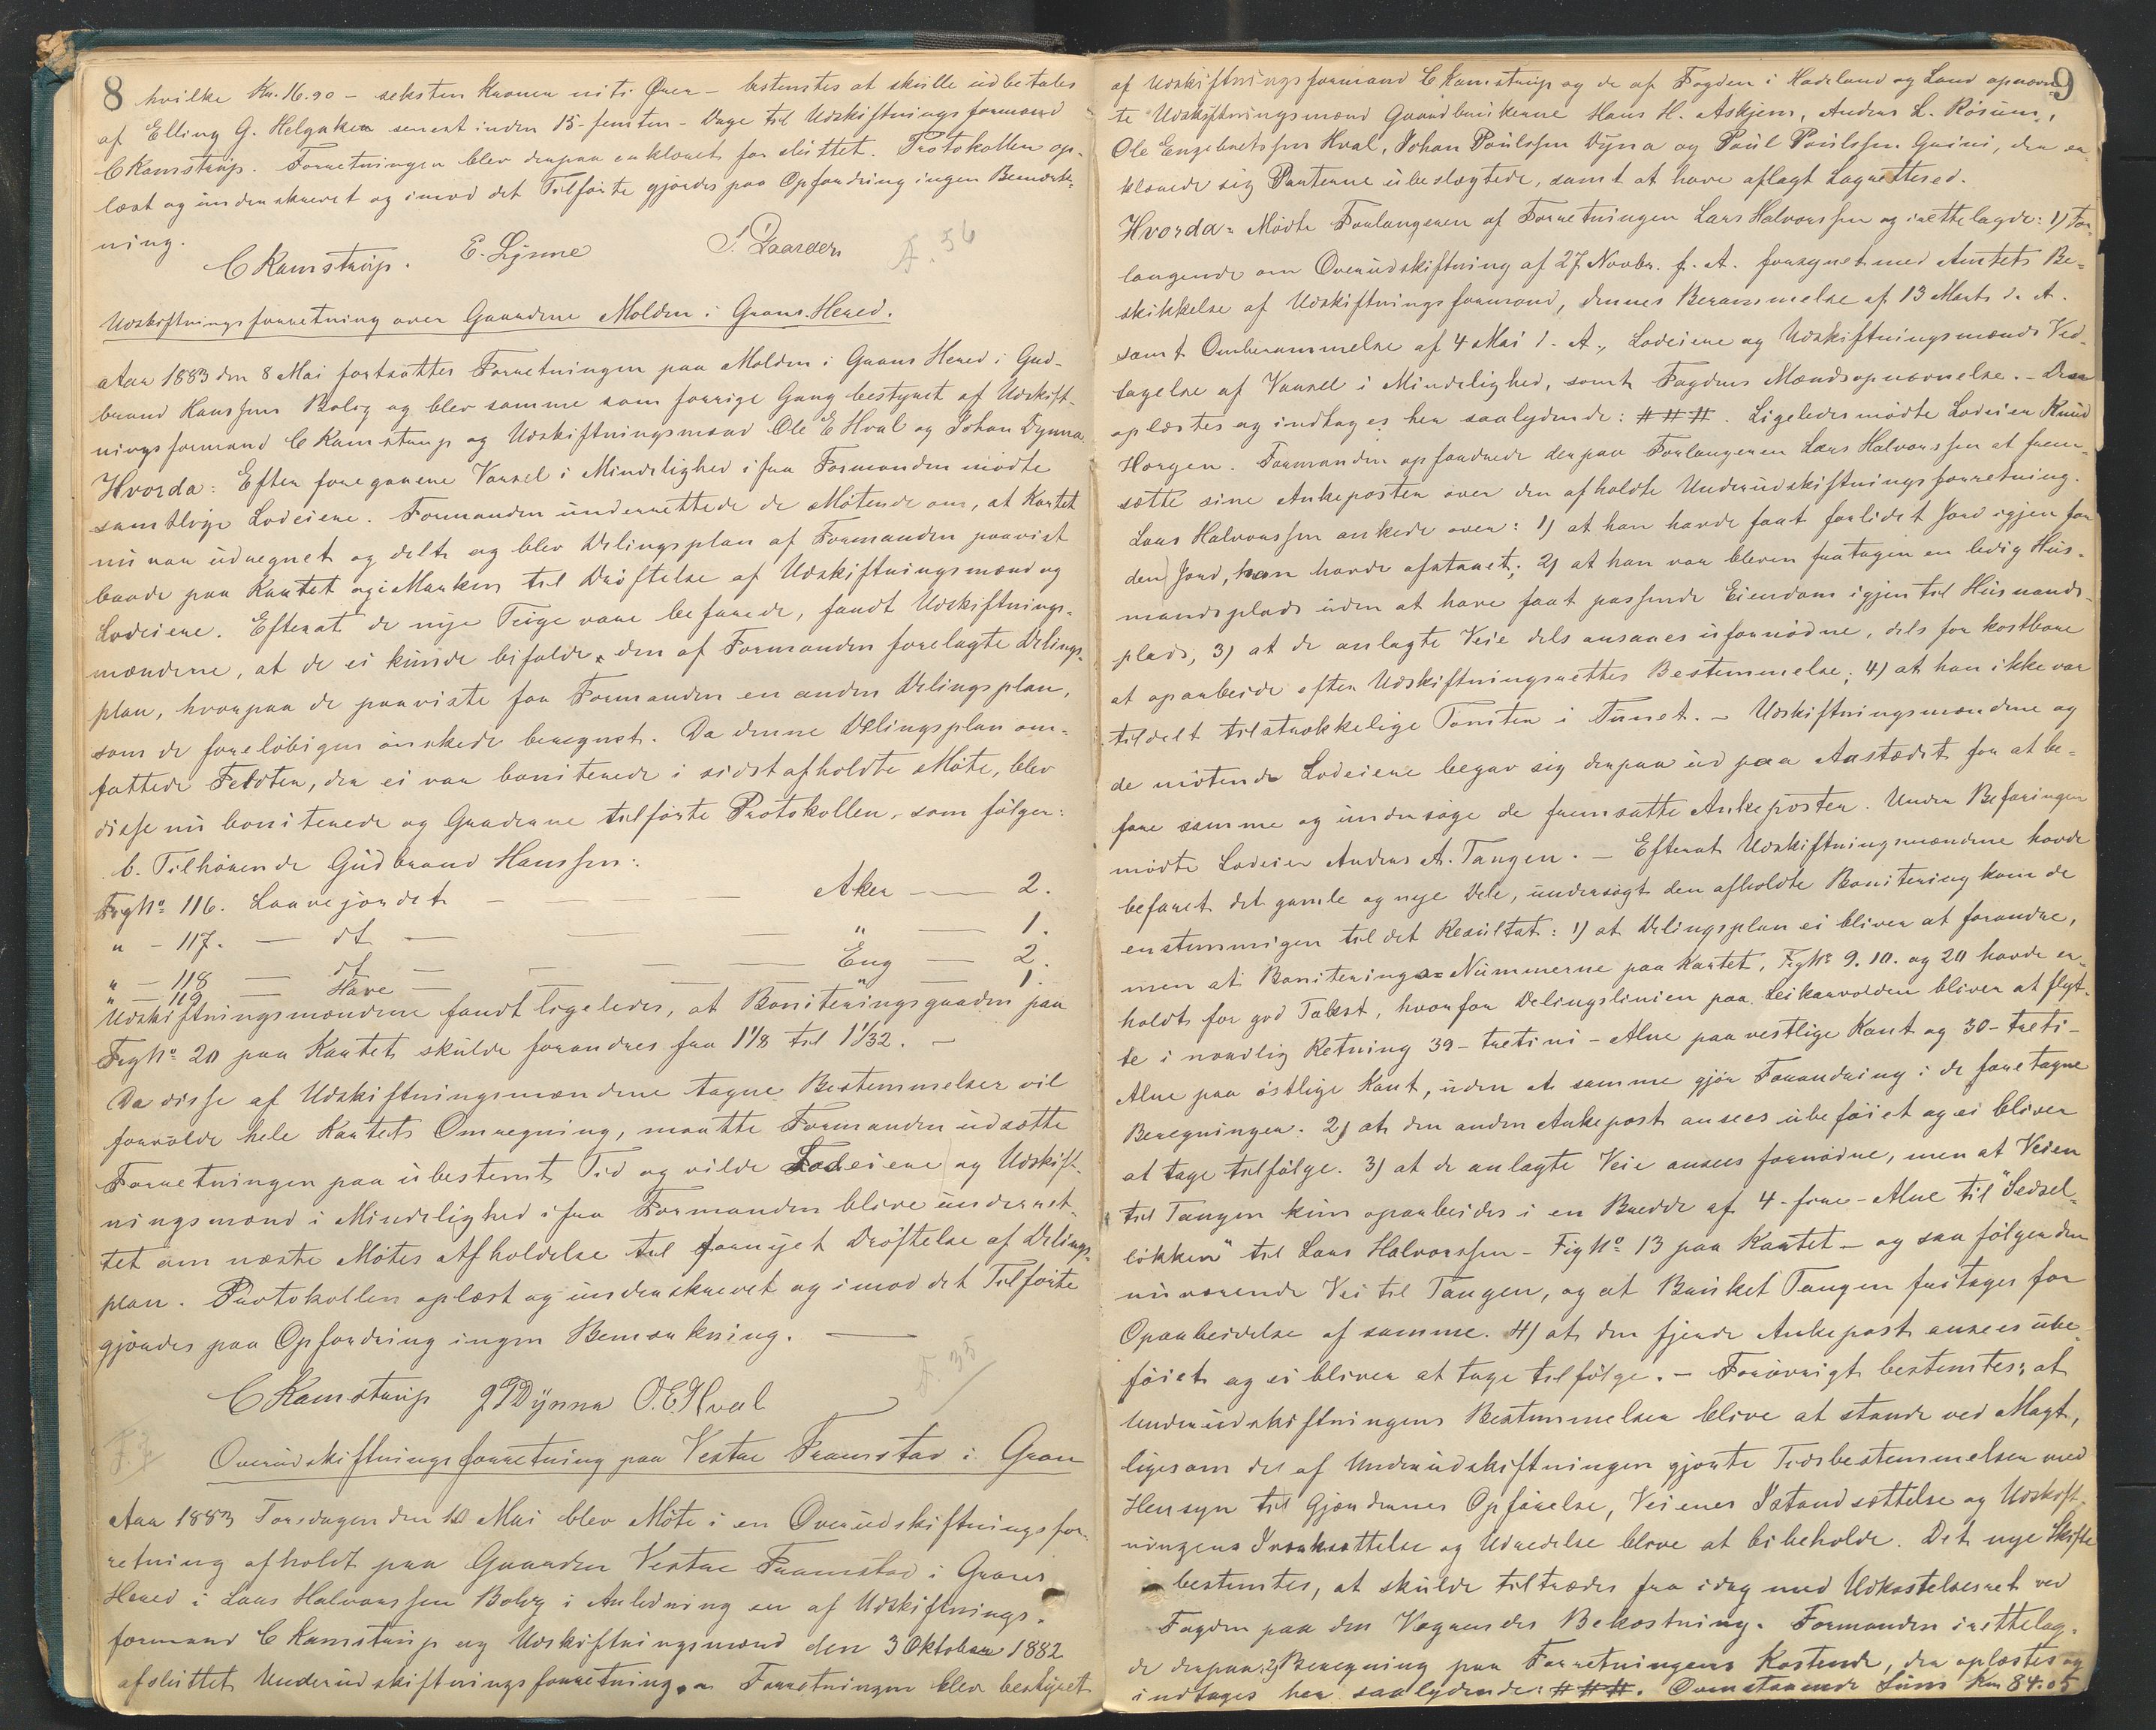 8
hvilke Kr. 16.90 – seksten Kroner niti Ører – bestemtes at skulle udbetales
af Elling G. Helgaker senest inden 15 – femten – Dage til Udskiftningsformand
C Kamstrup. Forretningen blev derpaa erklæret for sluttet. Protokollen op-
læst og underskrevet og imod det Tilførte gjordes paa Opfordring ingen Bemærk-
ning.
C Kamstrup. E. Lynne P. Gaarder
Udskiftningsforretning over Gaardene Molden i Grans Hered.
Aar 1883 den 8 Mai fortsattes Forretningen paa Molden i Grans Hered i Gud-
brand Hanssens Bolig og blev samme som forrige Gang bestyret af Udskift-
ningsformand C Kamstrup og Udskiftningsmænd Ole E Hval og Johan Dynna.
Hvorda: Efter foregaaene Varsel i Mindelighed ifra Formanden mødte
samtlige Lodeiere. Formanden underrettede de Møtende om, at Kartet
nu var udregnet og delt og blev Delingsplan af Formanden paavist
baade paa Kartet og i Marken til Drøftelse af Udskiftningsmænd og
Lodeiere. Efterat de nye Teige vare befarede, fandt Udskiftnings-
mændene, at de ei kunde bifalde den af Formanden forelagte Delings-
plan, hvorpaa de paaviste for Formanden en anden Delingsplan,
som de foreløbigen ønskede beregnet. Da denne Delingsplan om-
fattede Feldter, der ei var boniterede i sidst afholdte Møte, blev
disse nu boniterede og Graderne tilførte Protokollen, som følger:
b. Tilhørende Gudbrand Hanssen:
Fig No 116. Laavejordet — Aker — 2.
" – 117. — dt — " — 1.
" – 118 — dt — Eng — 2.
" – 119 — Have — " — 1.
Udskiftningsmændene fandt ligeledes, at Boniteringsgraden paa
Fig No 20 paa Kartet skulde forandres fra 1 1/8 til 1 1/32. –
Da disse af Udskiftningsmændene tagne Bestemmelser vil
forvolde hele Kartets Omregning, maatte Formanden udsætte
Forretningen paa ubestemt Tid og vilde Lodeiere og Udskift-
ningsmænd i Mindelighed ifra Formanden blive underret-
tet om næste Møtes Afholdelse til fornyet Drøftelse af Delings-
plan. Protokollen oplæst og underskrevet og imod det Tilførte
gjordes paa Opfordring ingen Bemærkning. —
C Kamstrup J P Dynna O. E. Hval
Overudskiftningsforretning paa Vestre Framstad i Gran
Aar 1883 Torsdagen den 10 Mai blev Møte i en Overudskiftningsfor-
retning afholdt paa Gaarden Vestre Framstad i Grans
Hered i Lars Halvorssen Bolig i Anledning en af Udskiftnings-
formand C Kamstrup og Udskiftningsmænd den 3 Oktober 1882
afsluttet Underudskiftningsforretning. – Forretningen blev bestyret
9
af Udskiftningsformand C Kamstrup og de af Fogden i Hadeland og Land opnævn-
te Udskiftningsmænd Gaardbrukerne Hans H. Askjem, Anders L. Røsum,
Ole Engebretssen Hval, Johan Poulssen Dyna og Poul Poulssen Grini, der er-
klærede sig Parterne ubeslægtede, samt at have aflagt Lagrettesed.
Hvorda: Mødte Forlangeren af Forretningen Lars Halvorssen og irettelagde: 1) For-
langende om Overudskiftning af 27 Novbr. f. A. forsynet med Amtets Be-
skikkelse af Udskiftningsformand, dennes Berammelse af 13 Marts d. A.
samt Omberammelse af 4 Mai d. A., Lodeiere og Udskiftningsmænds Ved-
tagelse af Varsel i Mindelighed, samt Fogdens Mændsopnævnelse. – Disse
oplæstes og indtages her saalydende: ###. Ligeledes mødte Lodeier Knud
Horgen. Formanden opfordrede derpaa Forlangeren Lars Halvorssen at frem-
sætte sine Ankeposter over den afholdte Underudskiftningsforretning.
Lars Halvorssen ankede over: 1) at han havde faat forlidet Jord igjen for
den Jord, han havde afstaaet; 2) at han var bleven fratagen en ledig Hus-
mandsplads uden at have faat passende Eiendom igjen til Husmands-
plads, 3) at de anlagte Veie dels ansaaes ufornødne, dels for kostbare
at oparbeide efter Udskiftningsrettes Bestemmelse; 4) at han ikke var
tildelt tilstrækkelige Tomter i Tunet. – Udskiftningsmændene og
de møtende Lodeiere begav sig derpaa ud paa Aastædet for at be-
fare samme og undersøge de fremsatte Ankeposter. Under Befaringen
mødte Lodeier Anders A. Tangen. – Efterat Udskiftningsmændene havde
befaret det gamle og nye Dele, undersøgt den afholdte Bonitering kom de
enstemmigen til det Resultat: 1) at Delingsplan ei bliver at forandre,
men at Boniterings Nummerne paa Kartet, Fig No 9. 10. og 20 havde er-
holdt for god Takst, hvorfor Delingslinien paa Leikarvolden bliver at flyt-
te i nordlig Retning 39 – tretini – Alne paa vestlige Kant og 30 – treti –
Alne paa østlige Kant, uden at samme gjør Forandring i de foretagne
Beregninger. 2) at den anden Ankepost ansees ubeføiet og ei bliver
at tage tilfølge. 3) at de anlagte Veie ansees fornødne, men at Veien
til Tangen kun oparbeides i en Bredde af 4 – fire – Alne til "Sedsel-
løkken" til Lars Halvorssen – Fig No 13 paa Kartet – og saa følger den
nuværende Vei til Tangen, og at Bruket Tangen fritages for
Oparbeidelse af samme. 4) at den fjerde Ankepost ansees ube-
føiet og ei bliver at tage tilfølge. – Forøvrigt bestemtes, at
Underudskiftningens Bestemmelser blive at stande ved Magt,
ligesom de af Underudskiftningen gjorte Tidsbestemmelser med
Hensyn til Gjærdernes Opførelse, Veienes Istandsættelse og Udskift-
ningens Iværksættelse og Udredelse blive at bibeholde. Det nye Skifte
bestemtes, at skulde tiltrædes fra idag med Udkastelsesret ved
Fogden paa den Vægrendes Bekostning. Formanden irettelag-
de derpaa: 2) Beregning paa Forretningens Kostende, der oplæstes og
indtages her saalydende: ###. Ovenstaaende Sum Kr. 84.05